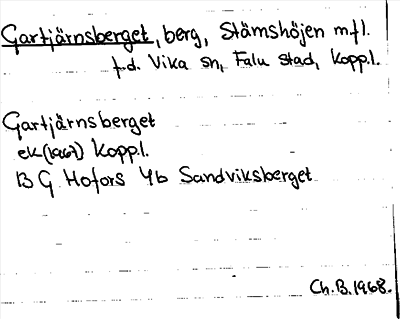 Gartjärnsberget, berg, Stämshöjen m.fl.
f.d. Vika sn, Falu stad, Koppl.
Gartjärnsberget
ek (1967) Koppl.
13 G Hofors 4b Sandviksberget
Ch.B. 1968.